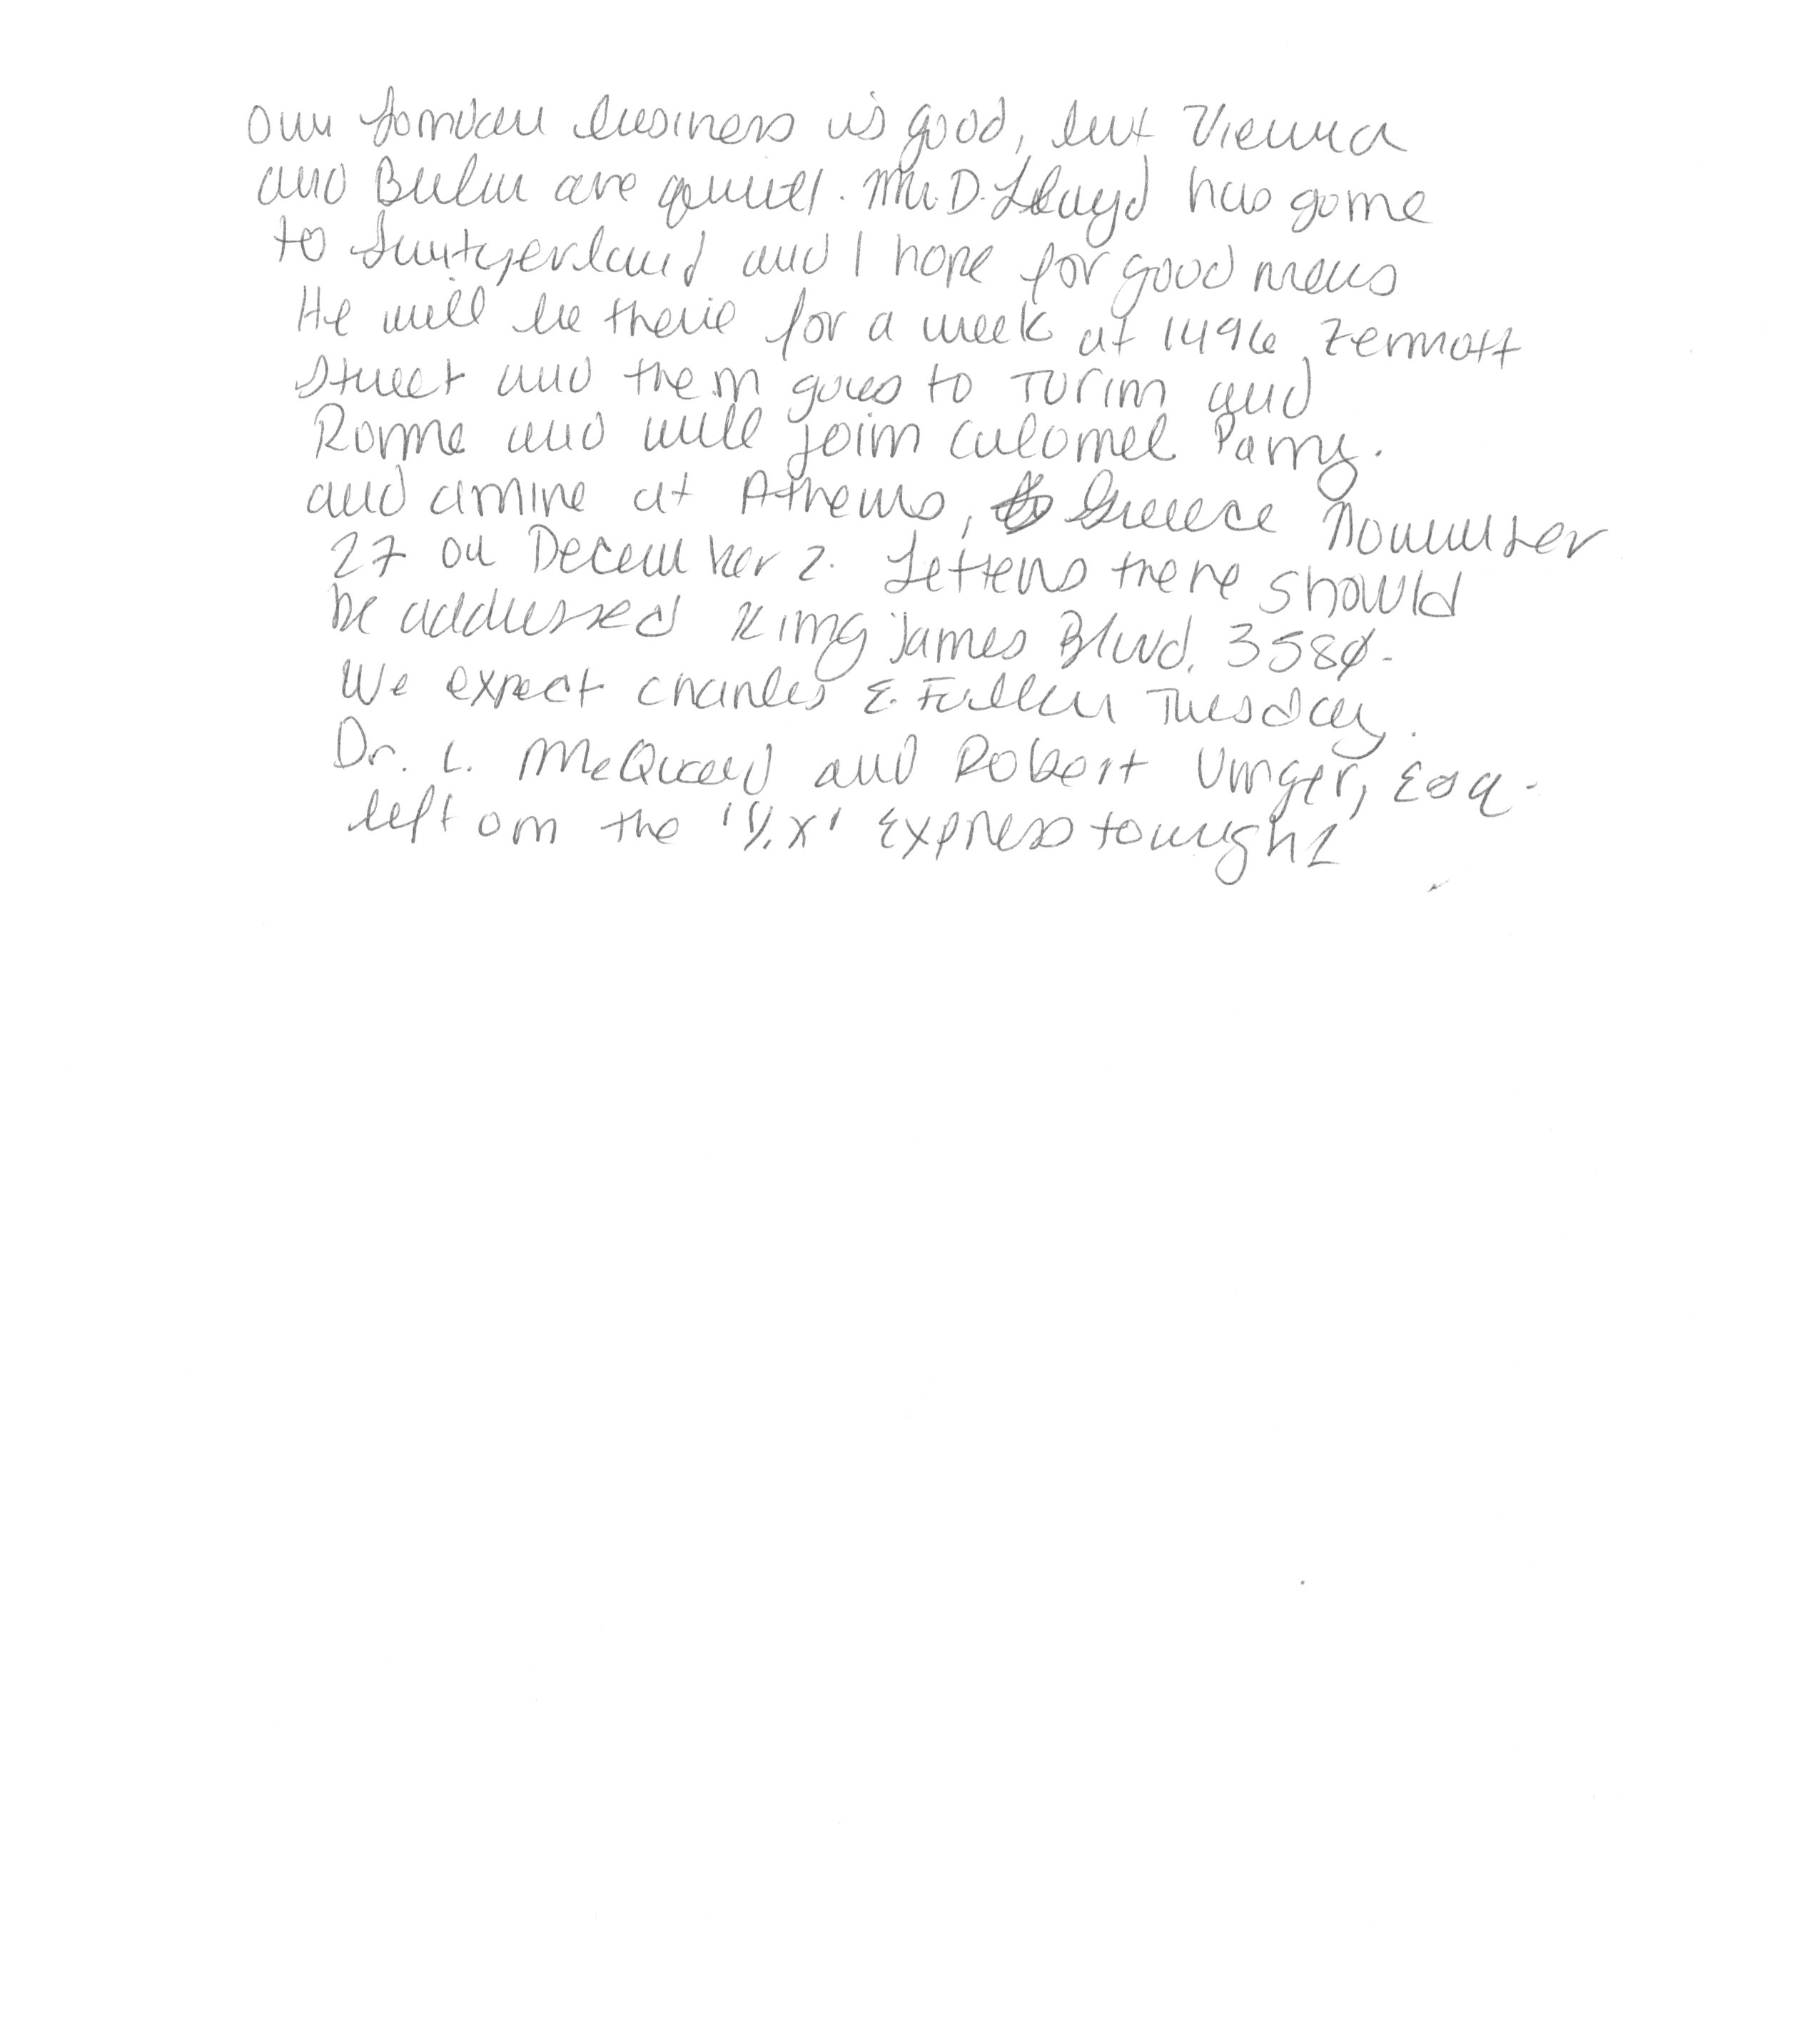 Our London business is good, but Vienna
and Berlin are quiet. Mr. D. Lloyd has gone
to Switzerland and I hope for good news
He will be there for a week at 1496 Zermott
Street and then goes to Turin and
Rome and will join Colonel Parry.
and arrive at Athens, Greece November
27 or December 2. Letters there should
be addressed King James Blvd. 3580.
We expect Charles E. Fuller Tuesday.
Dr. L. McQuaid and Robert Unger, Esq.
left on the 'Y.X' Express tonight